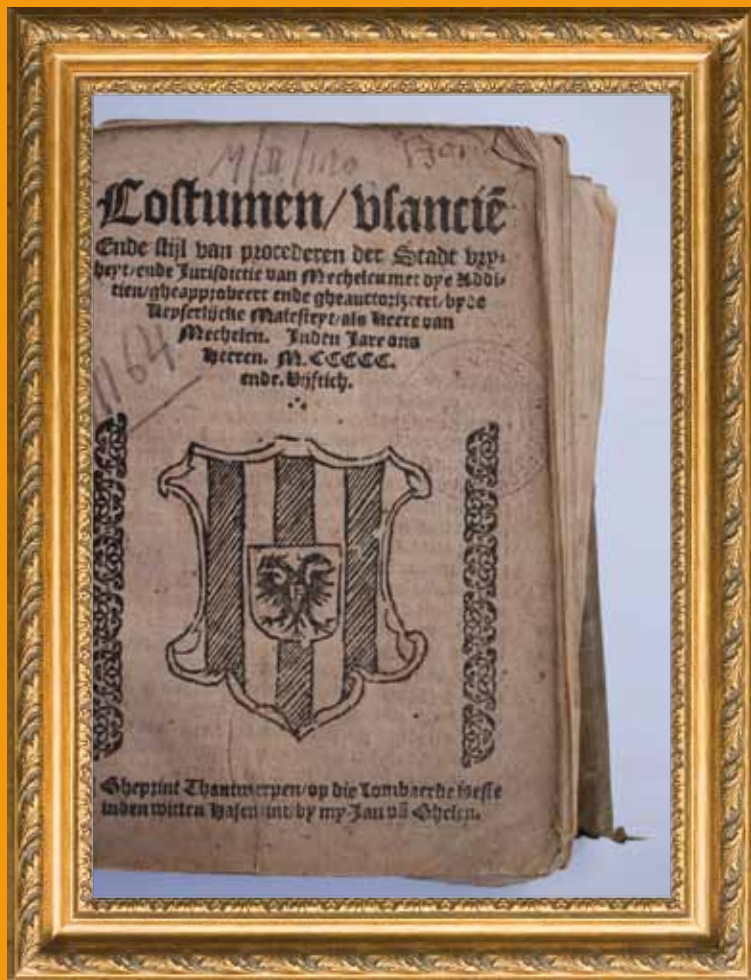 M/II/1120
Costumen/ vsanciē
Ende stijl van procederen der Stadt vry-
heyt/ende Jurisdictie van Mechelen met dye Addi-
tien/gheapprobeert ende gheauctorizeert/by de
Keyserlijcke Maiesteyt/als Heere van
Mechelen. Inden Jare ons
Heeren. M.CCCCC.
ende. Vijftich.
1164
Gheprint Thantwerpen/op die Lombaerde veste
inden witten Hasewint/by my Jan vā Ghelen.